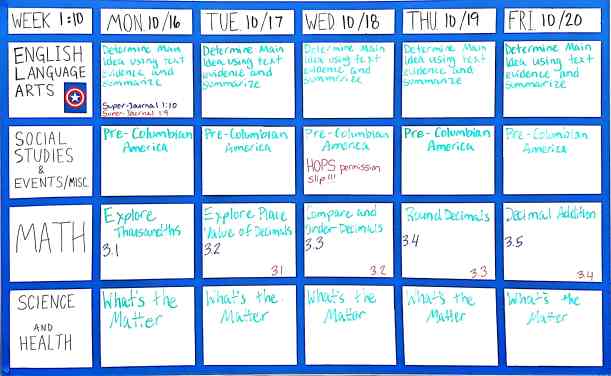 WEEK 1:10
MON. 10/16
TUE. 10/17
WED. 10/18
THU. 10/19
FRI. 10/20
ENGLISH
LANGUAGE
ARTS
Determine Main
Idea using text
evidence and
summarize
Super-Journal 1:10
Super-Journal 1:9
Determine Main
Idea using text
evidence and
summarize
Determine Main
Idea using text
evidence and
summarize
Determine Main
Idea using text
evidence and
summarize
Determine Main
Idea using text
evidence and
summarize
SOCIAL
STUDIES
&
EVENTS/MISC.
Pre-Columbian
America
Pre-Columbian
America
Pre-Columbian
America
HOPS permission
slip!!!
Pre-Columbian
America
Pre-Columbian
America
MATH
Explore
Thousandths
3.1
Explore Place
Value of Decimals
3.2
3.1
Compare and
Order Decimals
3.3
3.2
Round Decimals
3.4
3.3
Decimal Addition
3.5
3.4
SCIENCE
AND
HEALTH
What's the
Matter
What's the
Matter
What's the
Matter
What's the
Matter
What's the
Matter